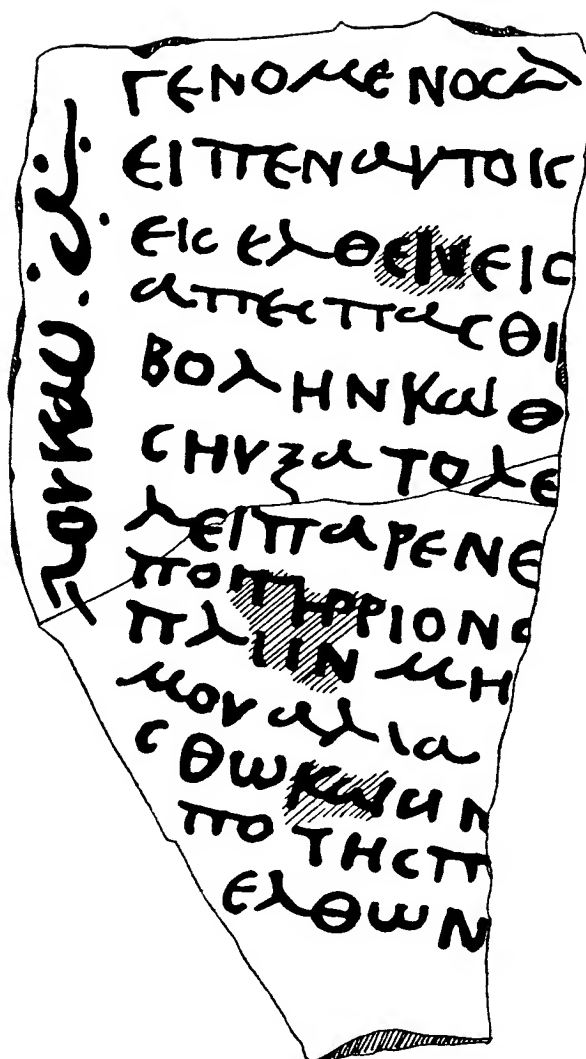 ΛΟΥΚΑΥ
ΓΕΝΟΜΕΝΟCΔ
ΕΙΠΕΝΑΥΤΟΙC
ΕΙCΕΛΘΕΙΝΕΙC
ΑΠΕCΠΑCΘΙ
ΒΟΛΗΝΚΑΙΘ
CΗΥΞΑΤΟΛΕ
ΛΕΙΠΑΡΕΝΕ
ΠΟΙΤΗΡΡΙΟΝC
ΠΛΙΙΝΜΗ
ΜΟΥΑΛΙΑ
CΘΩΚΑΙΗΝ
ΠΟΤΗCΠ
ΕΛΘΩΝ